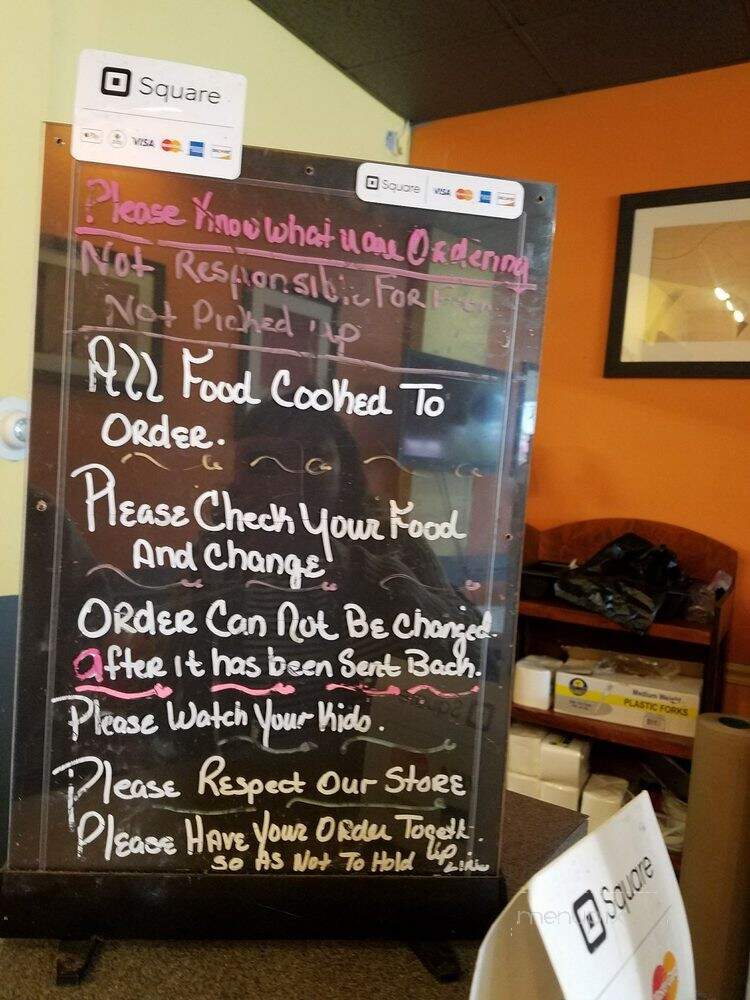 Square
VISA
Square VISA
Please Know What u are Ordering
Not Responsible FOR
Not Picked up
All Food Cooked To
ORdER.
Please Check Your Food
And Change
ORdER Can Not Be Changed.
after it has been Sent Back.
Please Watch Your Kids.
Please Respect Our StoRE
Please HAVE Your ORder
so As Not To Hold UP Line
Medium Weight
PLASTIC FORKS
Square